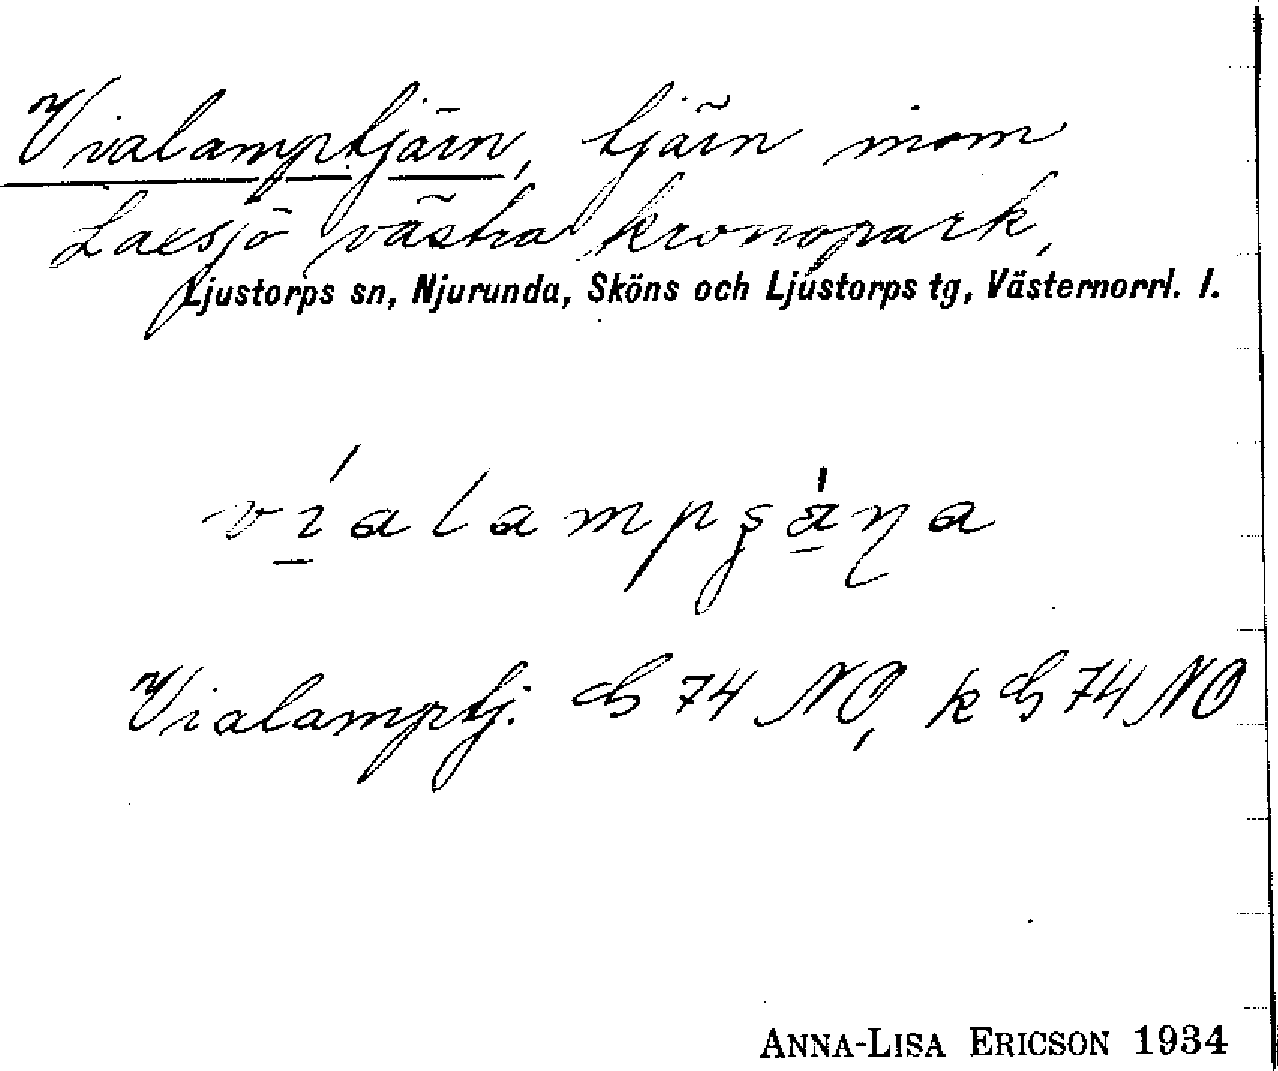 Vialamptjärn, tjärn inom
Laxsjö västra kronopark,
Ljustorps sn, Njurunda, Sköns och Ljustorps tg, Västernorrl. l.
Vialamptj. GS 74 NO, k GS 74 NO
ANNA-LISA ERICSON 1934